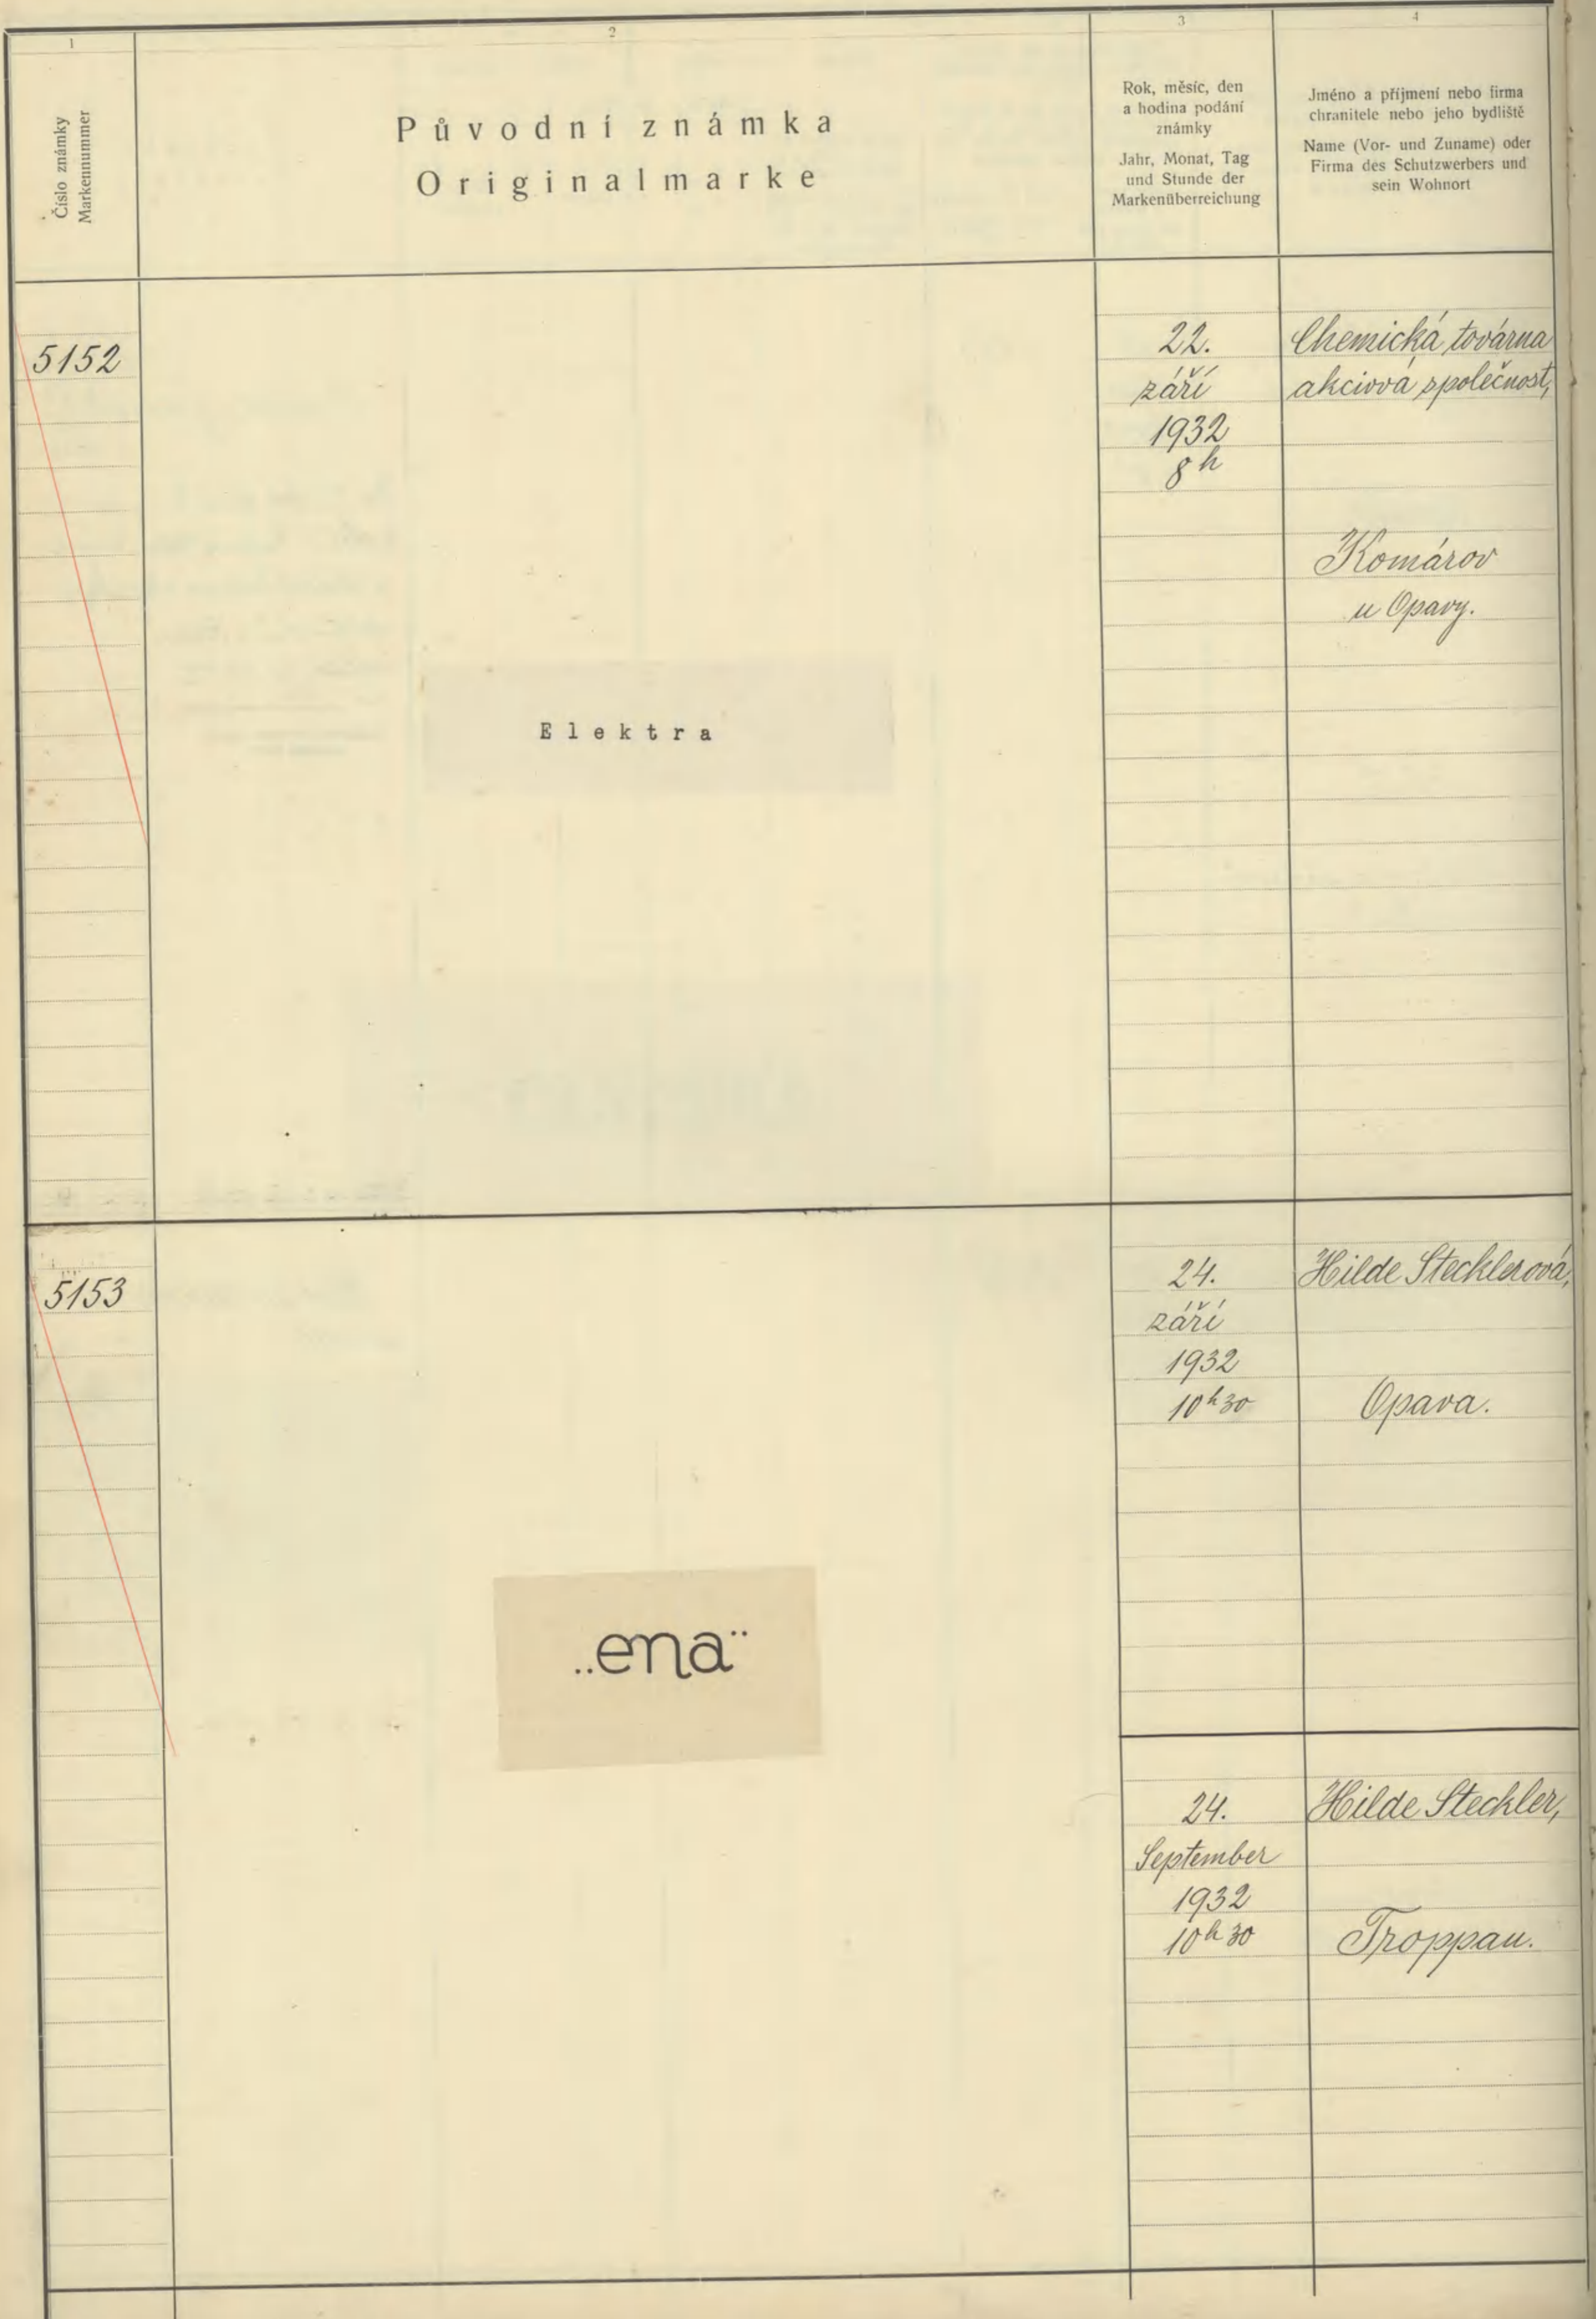 1
2
3
4
Číslo známky
Markennummer
Původní známka
Originalmarke
Rok, měsíc, den
a hodina podání
známky
Jahr, Monat, Tag
und Stunde der
Markenüberreichung
Jméno a příjmení nebo firma
chranitele nebo jeho bydliště
Name (Vor- und Zuname) oder
Firma des Schutzwerbers und
sein Wohnort
5152
Elektra
22.
září
1932
8 h
Chemická továrna
akciová společnost,
Komárov
u Opavy.
5153
„ena“
24.
září
1932
10 h 30
Hilde Stecklerová,
Opava.
24.
September
1932
10 h 30
Hilde Steckler,
Troppau.